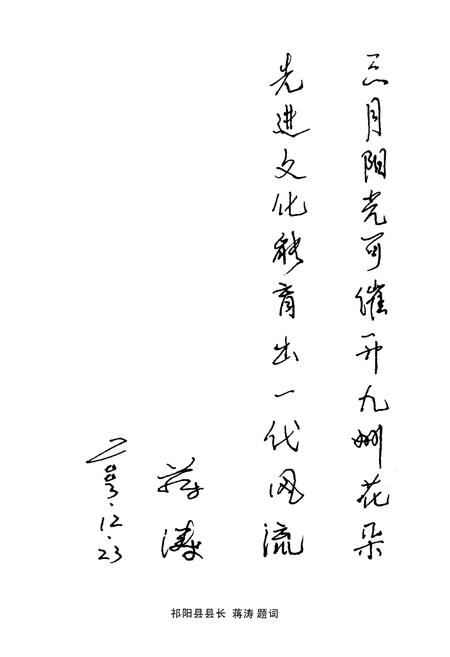 三月阳光可催开九州花朵
先进文化能育出一代风流
蒋涛
二〇〇三.12.23
祁阳县县长 蒋涛 题词